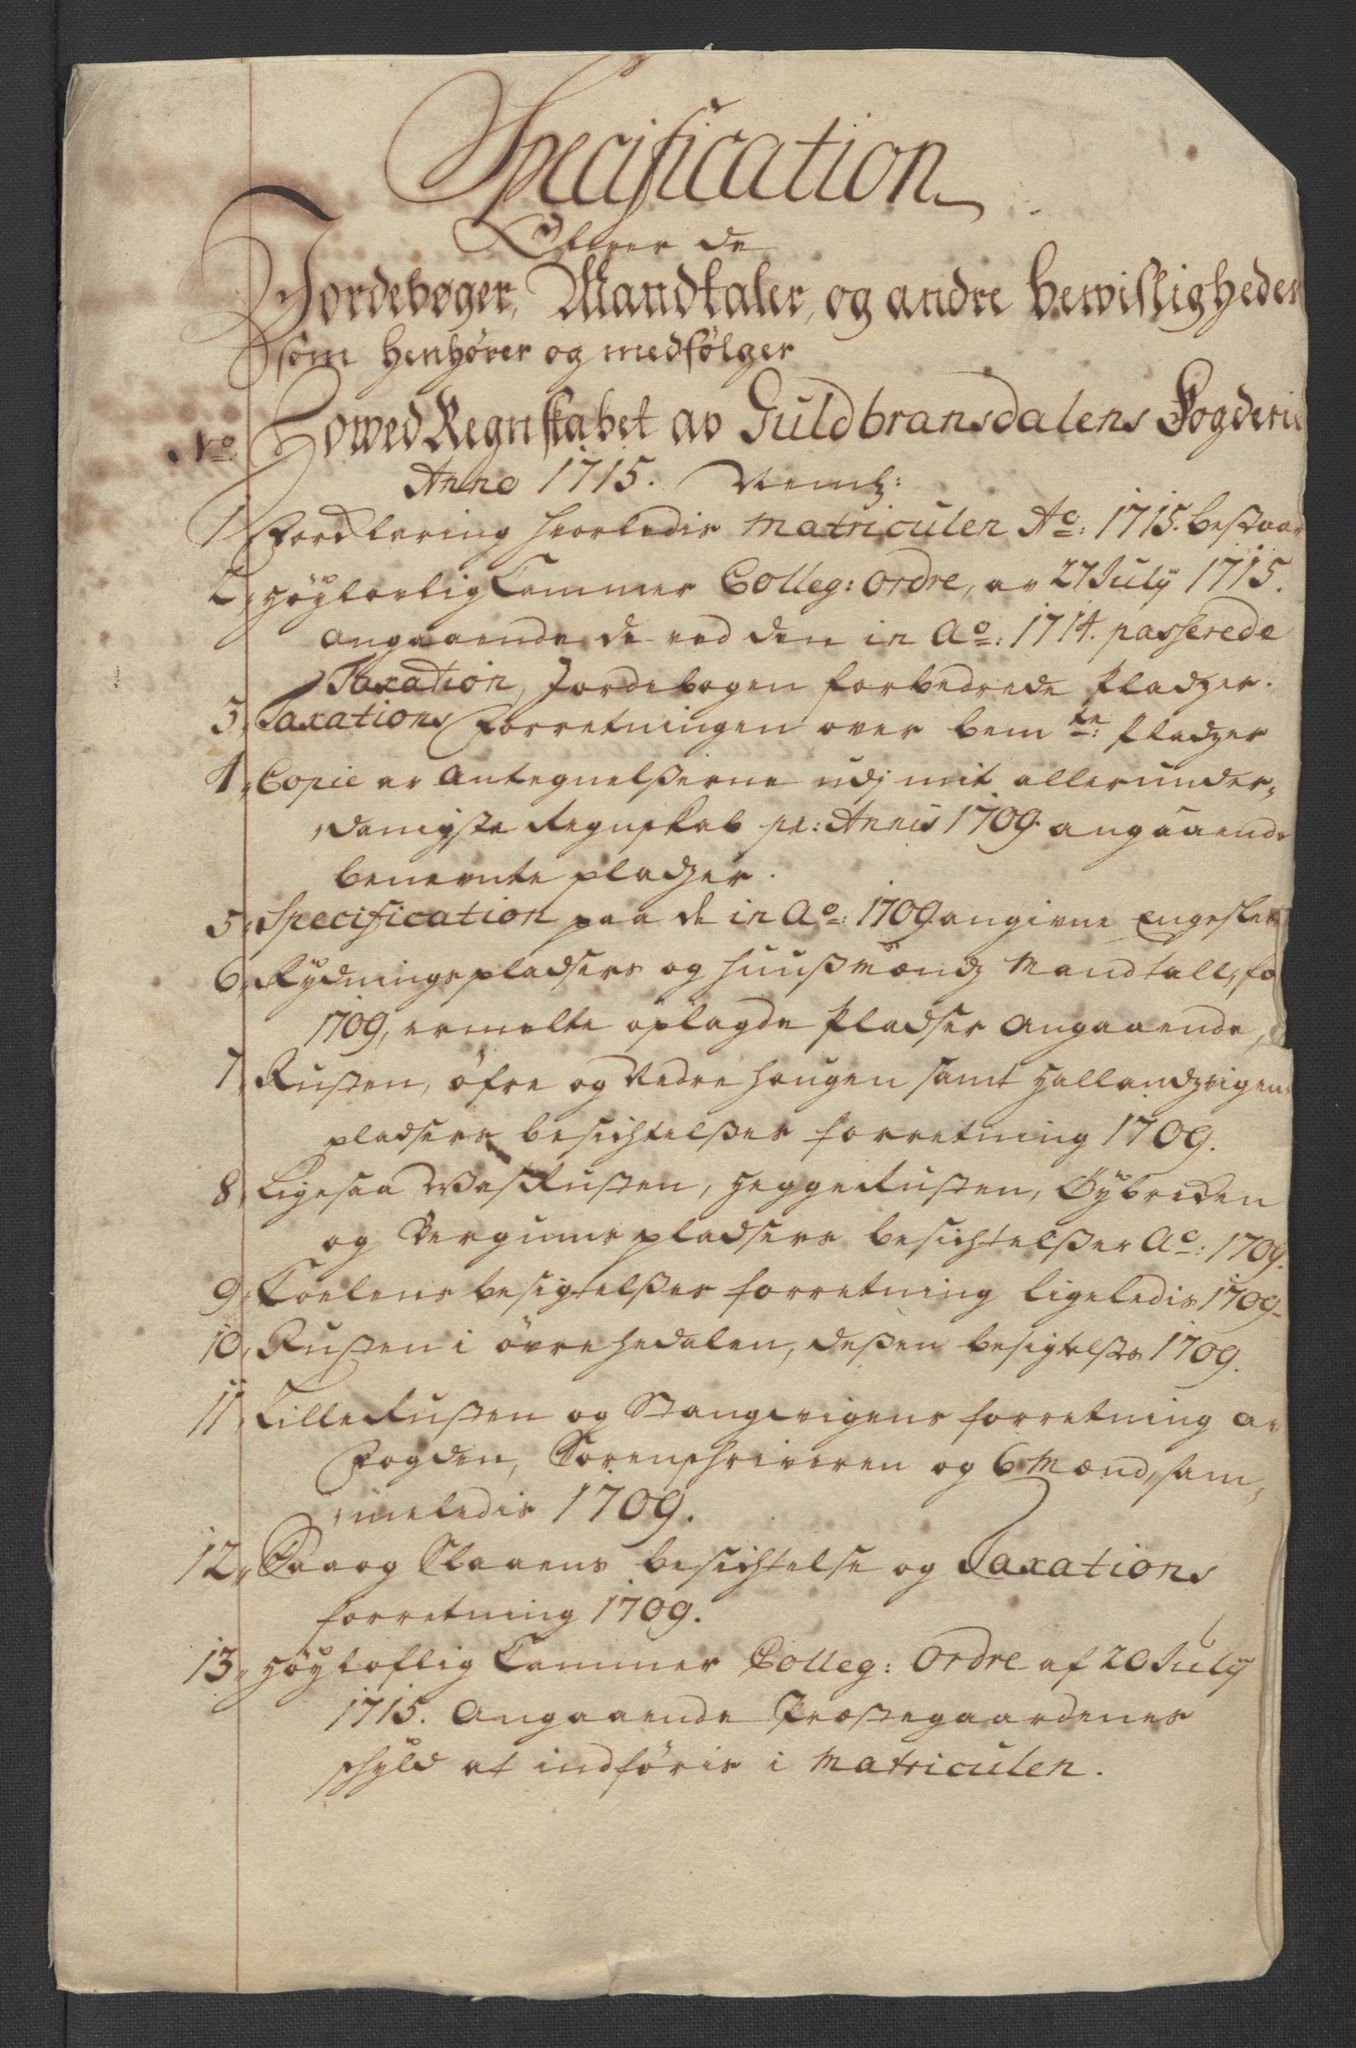 Specification
Efter de
Jordebøger, Mandtaler, og andre bewisligheder
som henhører og medfølger
No. Howed Regnskabet av Guldbransdalens Fogderie
Anno 1715. Nemlig:
1, Forklaring hvorledis Matriculen Ao: 1715. bestaar
2, Høylovlig Cammer Colleg: Ordre, av 27 July 1715.
angaaende de ved den in Ao: 1714. passerede
Taxation, Jordebogen forbedrede Pladzer.
3, Taxations Forretningen over bemte: Pladzer
4, Copie av Antegnelßerne udj mit allerunder,
danigste Regnskab pr: Annis 1709 angaaende
benevnte pladzer.
5, Specification paa de in Ao: 1709 angivne Engeslet
6, Rydningspladsers og Huußmændz Mandtall, fo
1709, ermelte oplagde Pladser Angaaende,
7, Rusten, öfre og Nedre Haugen samt Hallandzvigens
pladsers besichtelßes forretning 1709.
8, Ligesaa WesRusten, HeggeRusten, Øybreden
og Bergums pladsers besichtelßer Ao: 1709.
9, Coelens besigtelßes forretning ligeledis 1709
10, Rusten i övre Hedalen, deßen besigtelße 1709.
11, LilleRusten og Stangevigens forretning av
Fogden, Sorenschriveren og 6 Mænd, sam,
meledis 1709.
12, besichtelse og Taxations
forretning 1709.
13, Høyloflig Cammer Colleg: Ordre af 20 July
1715. Angaaende Præstegaardenes
schyld at indföris i Matriculen.